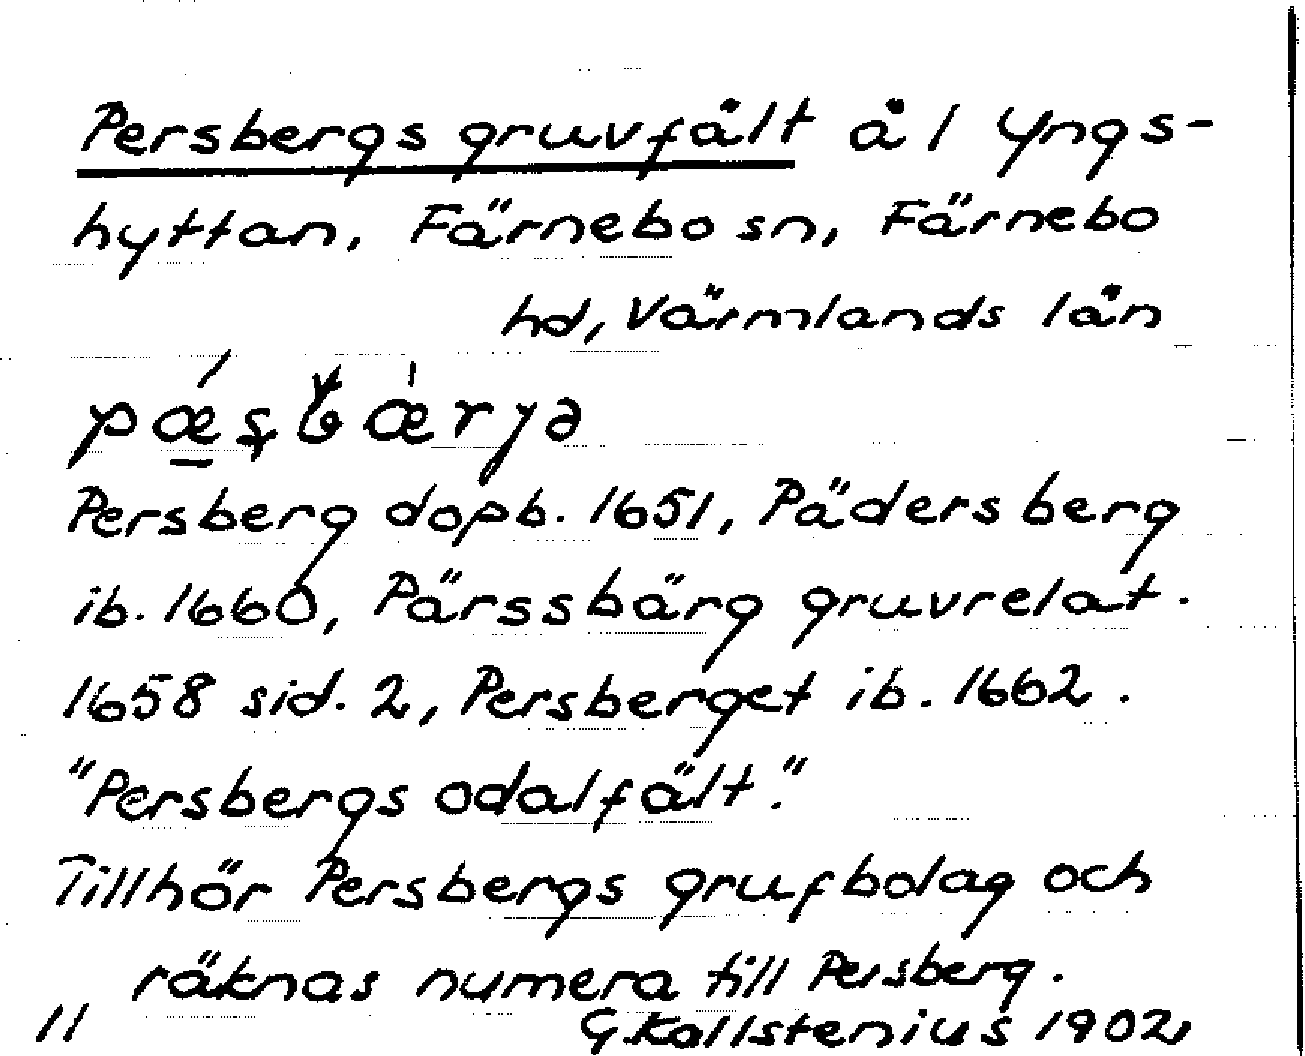 Persbergs gruvfält å l Yngs-
hyttan, Färnebo sn, Färnebo
hd, Värmlands län
Persberg dopb. 1651, Pädersberg
ib. 1660, Pärssbärg gruvrelat.
1658 sid. 2, Persberget ib. 1662.
"Persbergs odalfält."
Tillhör Persbergs grufbolag och
räknas numera till Persberg.
11 G Kallstenius 1902